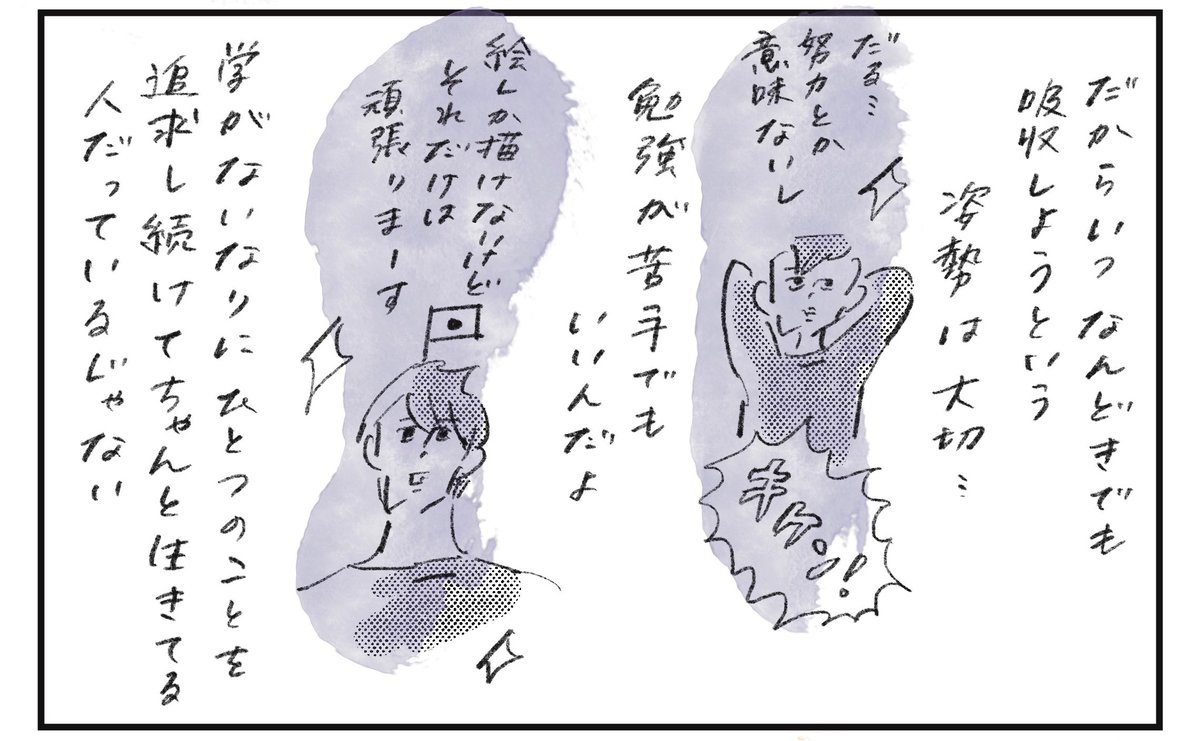 だからいつなんどきでも
吸収しようという
姿勢は大切…
だる…
努力とか
意味ないし
キケン!!
勉強が苦手でも
いいんだよ
絵しか描けないけど
それだけは
頑張りまーす
学がないなりにひとつのことを
追求し続けてちゃんと生きてる
人だっているじゃない